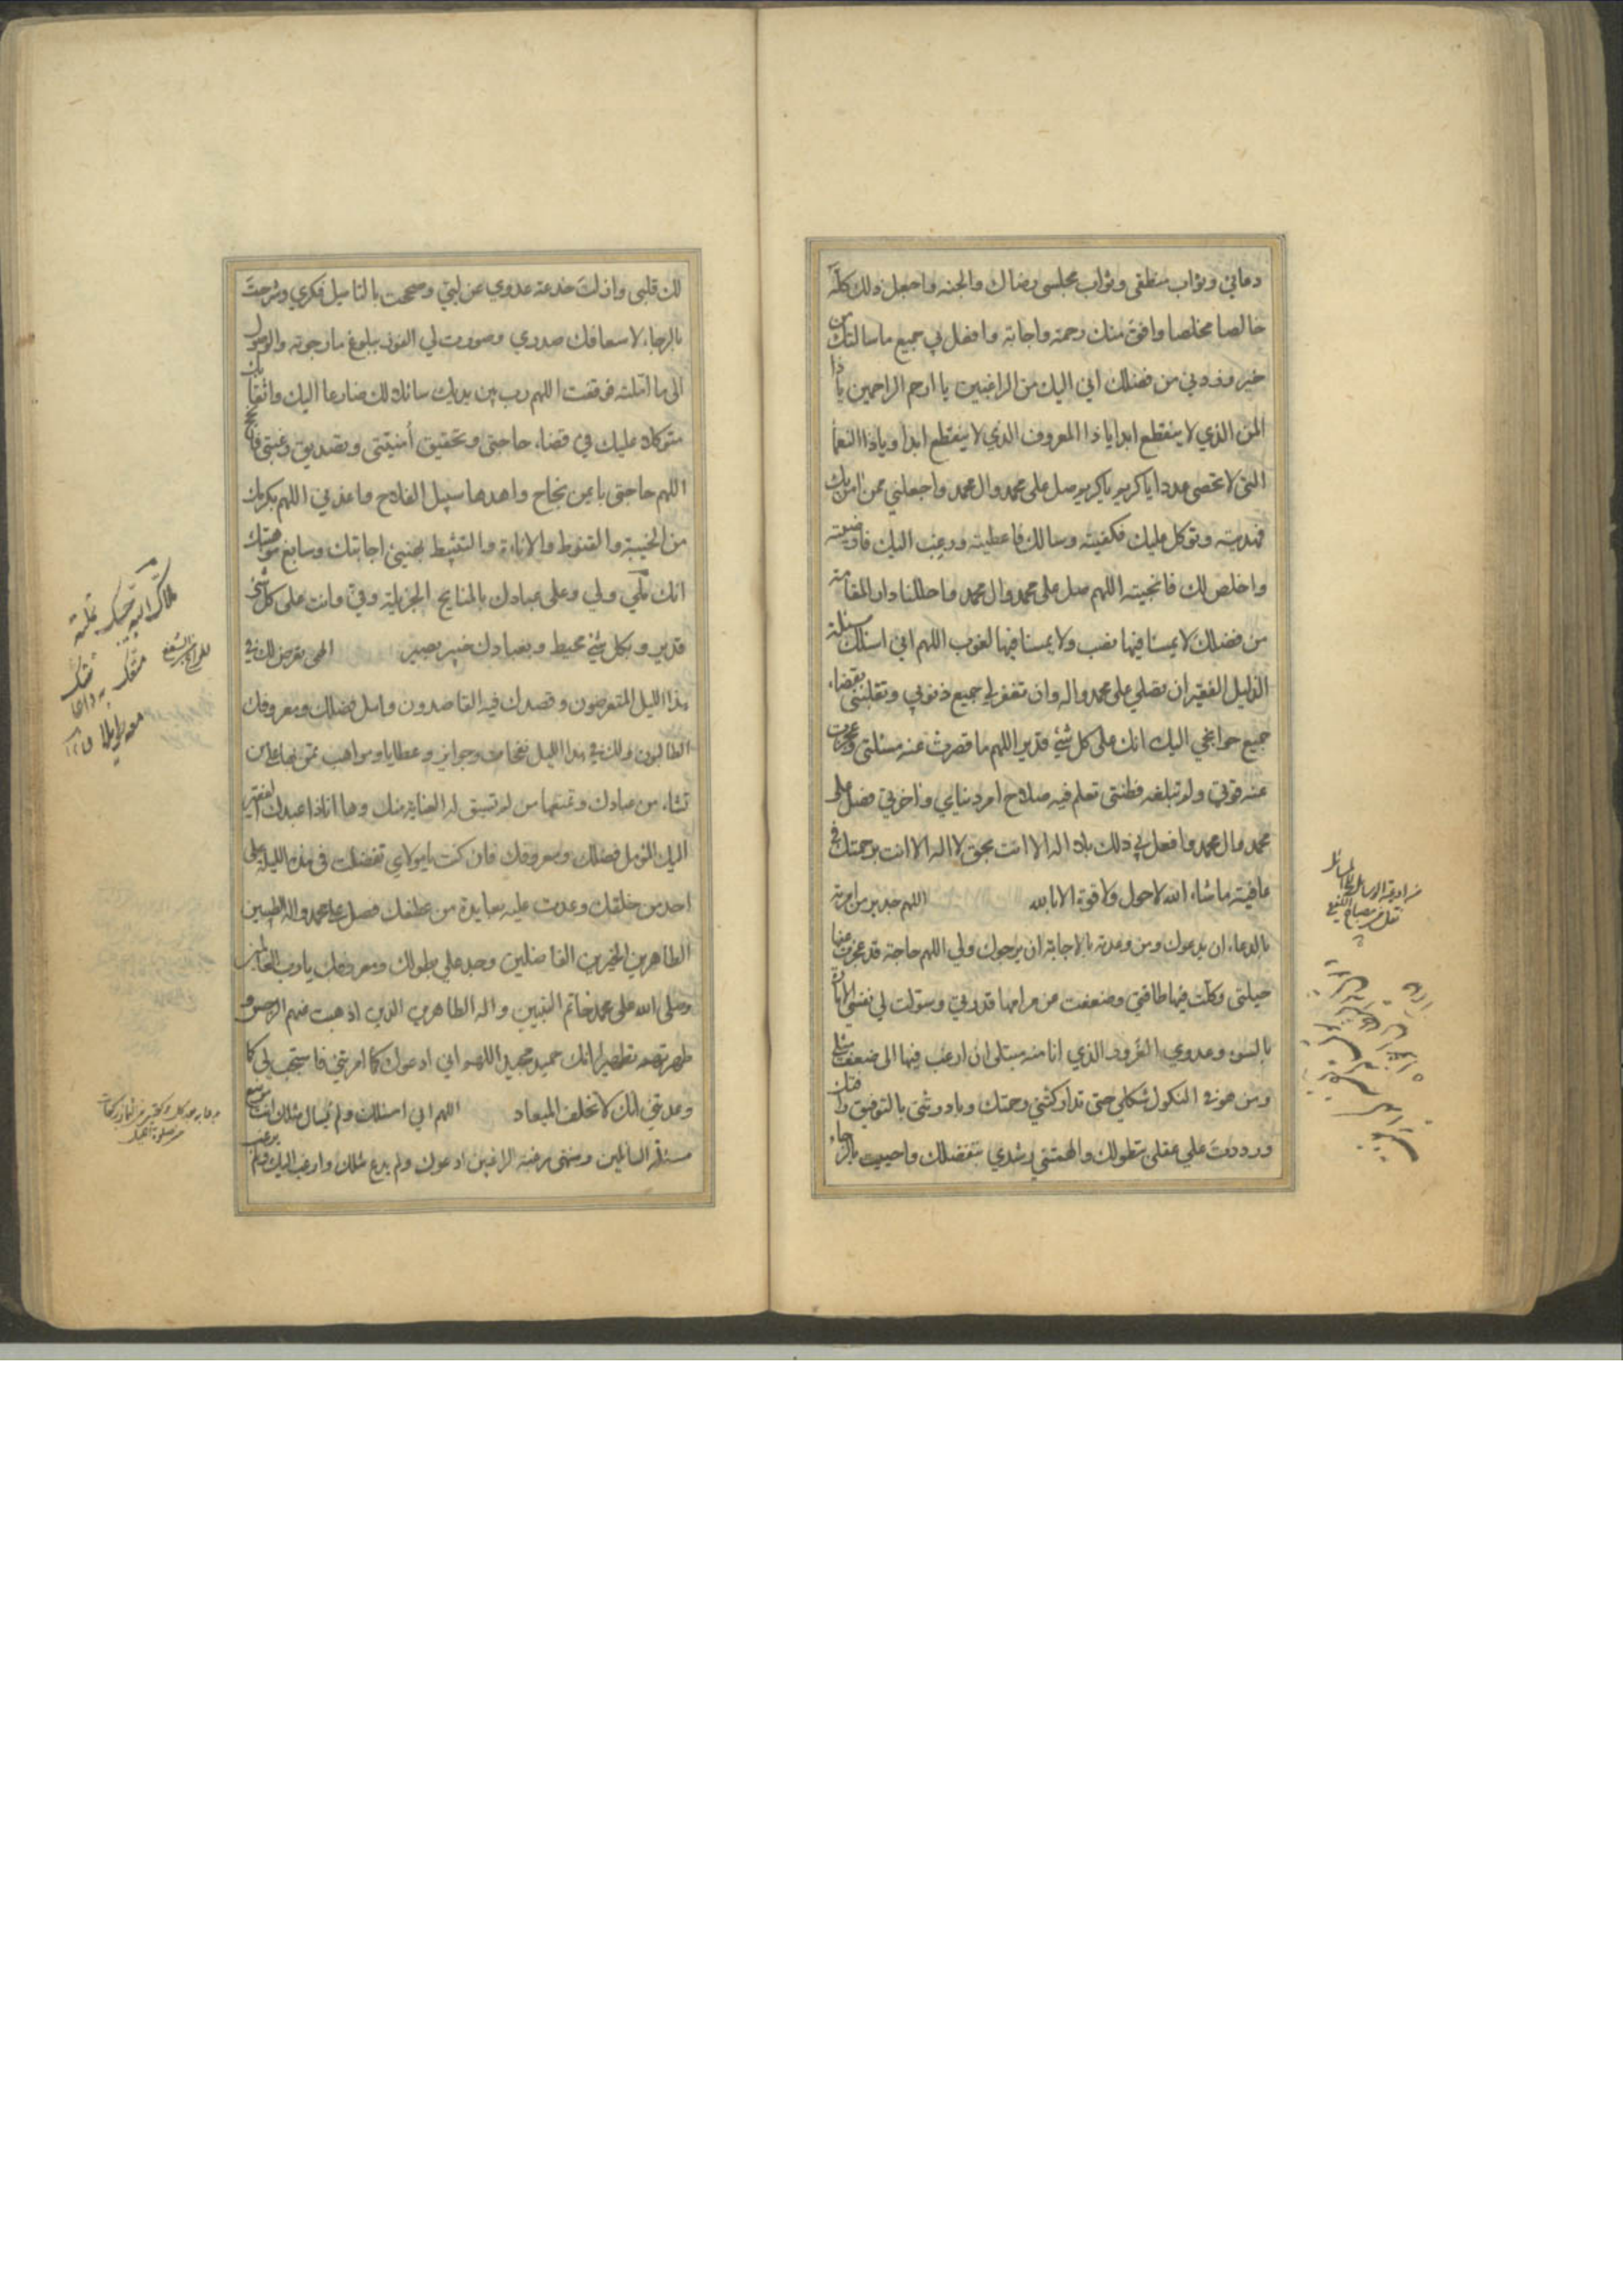 دعائي وثواب منطقي وثواب مجلسي رضاك والجنه واجعل ذلك كلّه
خالصا مخلصا وافق منك رحمة واجابة وافعل بي جميع ماسالتك من
خير وزدني من فضلك اني اليك من الراغبين يا ارحم الراحمين ياذا
المن الذي لا ينقطع ابدا ياذا المعروف الذي لا ينقطع ابدا وياذا النعما
التى لا تحصى عددا ياكريم ياكريم صل على محمد وال محمد واجعلني ممن امن بك
فهديته وتوكل عليك فكفيته وسالك فاعطيته ورغب اليك فارضيته
واخلص لك فانجيته اللهم صل على محمد وال محمد واحللنا دار المقامة
من فضلك لا يمسنا فيها نصب ولا يمسنا فيها لغوب اللهم اني اسئلك مسئلة
الذليل الفقير ان تصلي على محمد واله وان تغفر لي جميع ذنوبي وتقلبنى بقضاء
جميع حوائجي اليك انك على كل شئ قدير اللهم ما قصرت عنه مسئلتى وعجزت
عنه قوتي ولم تبلغه فطنتى تعلم فيه صلاح امر دنياي واخرتي فصل على
محمد وال محمد وافعل بي ذلك بلا اله الا انت بحق لا اله الا انت برحمتك في
عافية ماشاء الله لاحول ولا قوة الا بالله اللهم جدير من امرته
بالدعاء ان يدعوك ومن وعدته بالاجابة ان يرجوك ولي اللهم حاجة قد عجزت عنها
حيلتى وكلّت فيها طاقتي وضعفت عن مرامها قدرتي وسوّلت لي نفسي الامارة
بالسوء وعدوي الغرور الذي انا منه مبتلى ان ارغب فيها الى ضعيف مثلي
ومن هو في النكول شكلي حتى تداركتني رحمتك وبادرتني بالتوفيق رافتك
ورددت علي عقلي بتطولك والهمتني رشدي بتفضلك واحييت بالرجاء
لك قلبى وازلت خدعة عدوي عن لبّي وصححت بالتاميل فكري وشرحت
بالرجاء لاسعافك صدري وصورت لي الفوز ببلوغ مارجوته والوصول
الى ما امّلته فوقفت اللهم رب بين يديك سائلا لك ضارعا اليك واثقا بك
متوكلا عليك في قضاء حاجتي وتحقيق أمنيتى وتصديق رغبتى فانجح
اللهم حاجتى بايمن نجاح واهدها سبيل الفلاح واعذني اللهم بكرمك
من الخيبة والقنوط والاناءة والتثبيط بهنيئ اجابتك وسابغ موهبتك
انك ملي ولي وعلى عبادك بالمنايح الجزيلة وفيّ وانت على كل شئ
قدير وبكل شئ محيط وبعبادك خبير بصير الهى تعرض لك في
هذا الليل المتعرضون وقصدك فيه القاصدون وامل فضلك ومعروفك
الطالبون ولك في هذا الليل نفحات وجوايز وعطايا ومواهب تمن بها على من
تشاء من عبادك وتمنعها من لم تسبق له العناية منك وها اناذا عبدك الفقير
اليك المؤمل فضلك ومعروفك فان كنت يامولاي تفضلت في هذه الليلة على
احد من خلقك وعدت عليه بعايدة من عطفك فصل على محمد واله الطيبين
الطاهرين الخيرين الفاضلين وجد علي بطولك ومعروفك يارب العالمين
وصلى الله على محمد خاتم النبيين واله الطاهرين الذين اذهبت عنهم الرجس و
طهرتهم تطهيرا انك حميد مجيد اللهم اني ادعوك كما امرتني فاستجب لي كما
وعدتني انك لا تخلف الميعاد اللهم اني اسئلك ولم يسال مثلك انت موضع
مسئلة السائلين ومنتهى رغبة الراغبين ادعوك ولم يدع مثلك وارغب اليك ولم يرغب